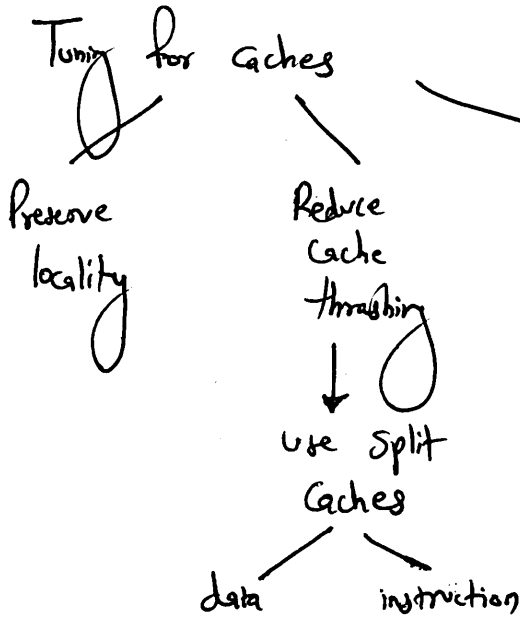 Tuning for Caches
Preserve
locality
Reduce
Cache
thrashing
Use Split
Caches
data
instruction